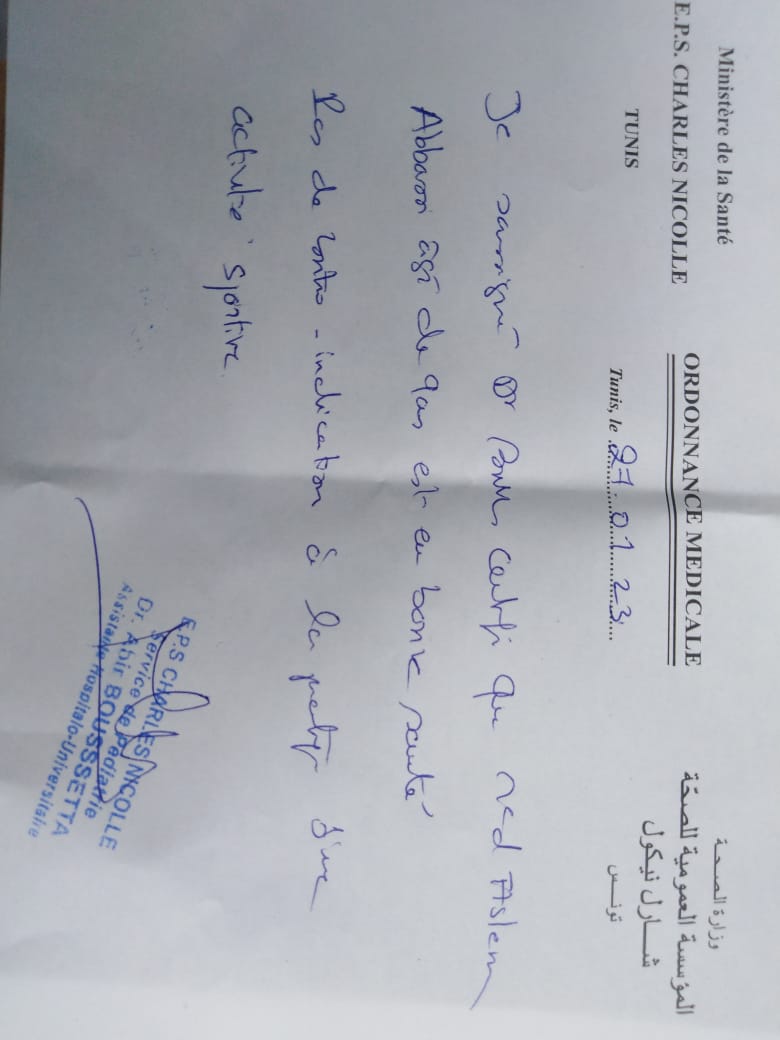 Ministère de la Santé
E.P.S. CHARLES NICOLLE
TUNIS
ORDONNANCE MEDICALE
Tunis, le 27.01.23
وزارة الصحة
المؤسسة العمومية للصحة
شارل نيكول
تونس
Je soussigné Dr certifi que Med Aslem
Abbassi agé de 9ans est en bonne santé
Pas de contre-indication à la pratiq d'une
activité sportive
E.P.S CHARLES NICOLLE
Service de Pédiatrie
Dr. Abir BOUSSSETTA
Assistante Hospitalo-Universitaire